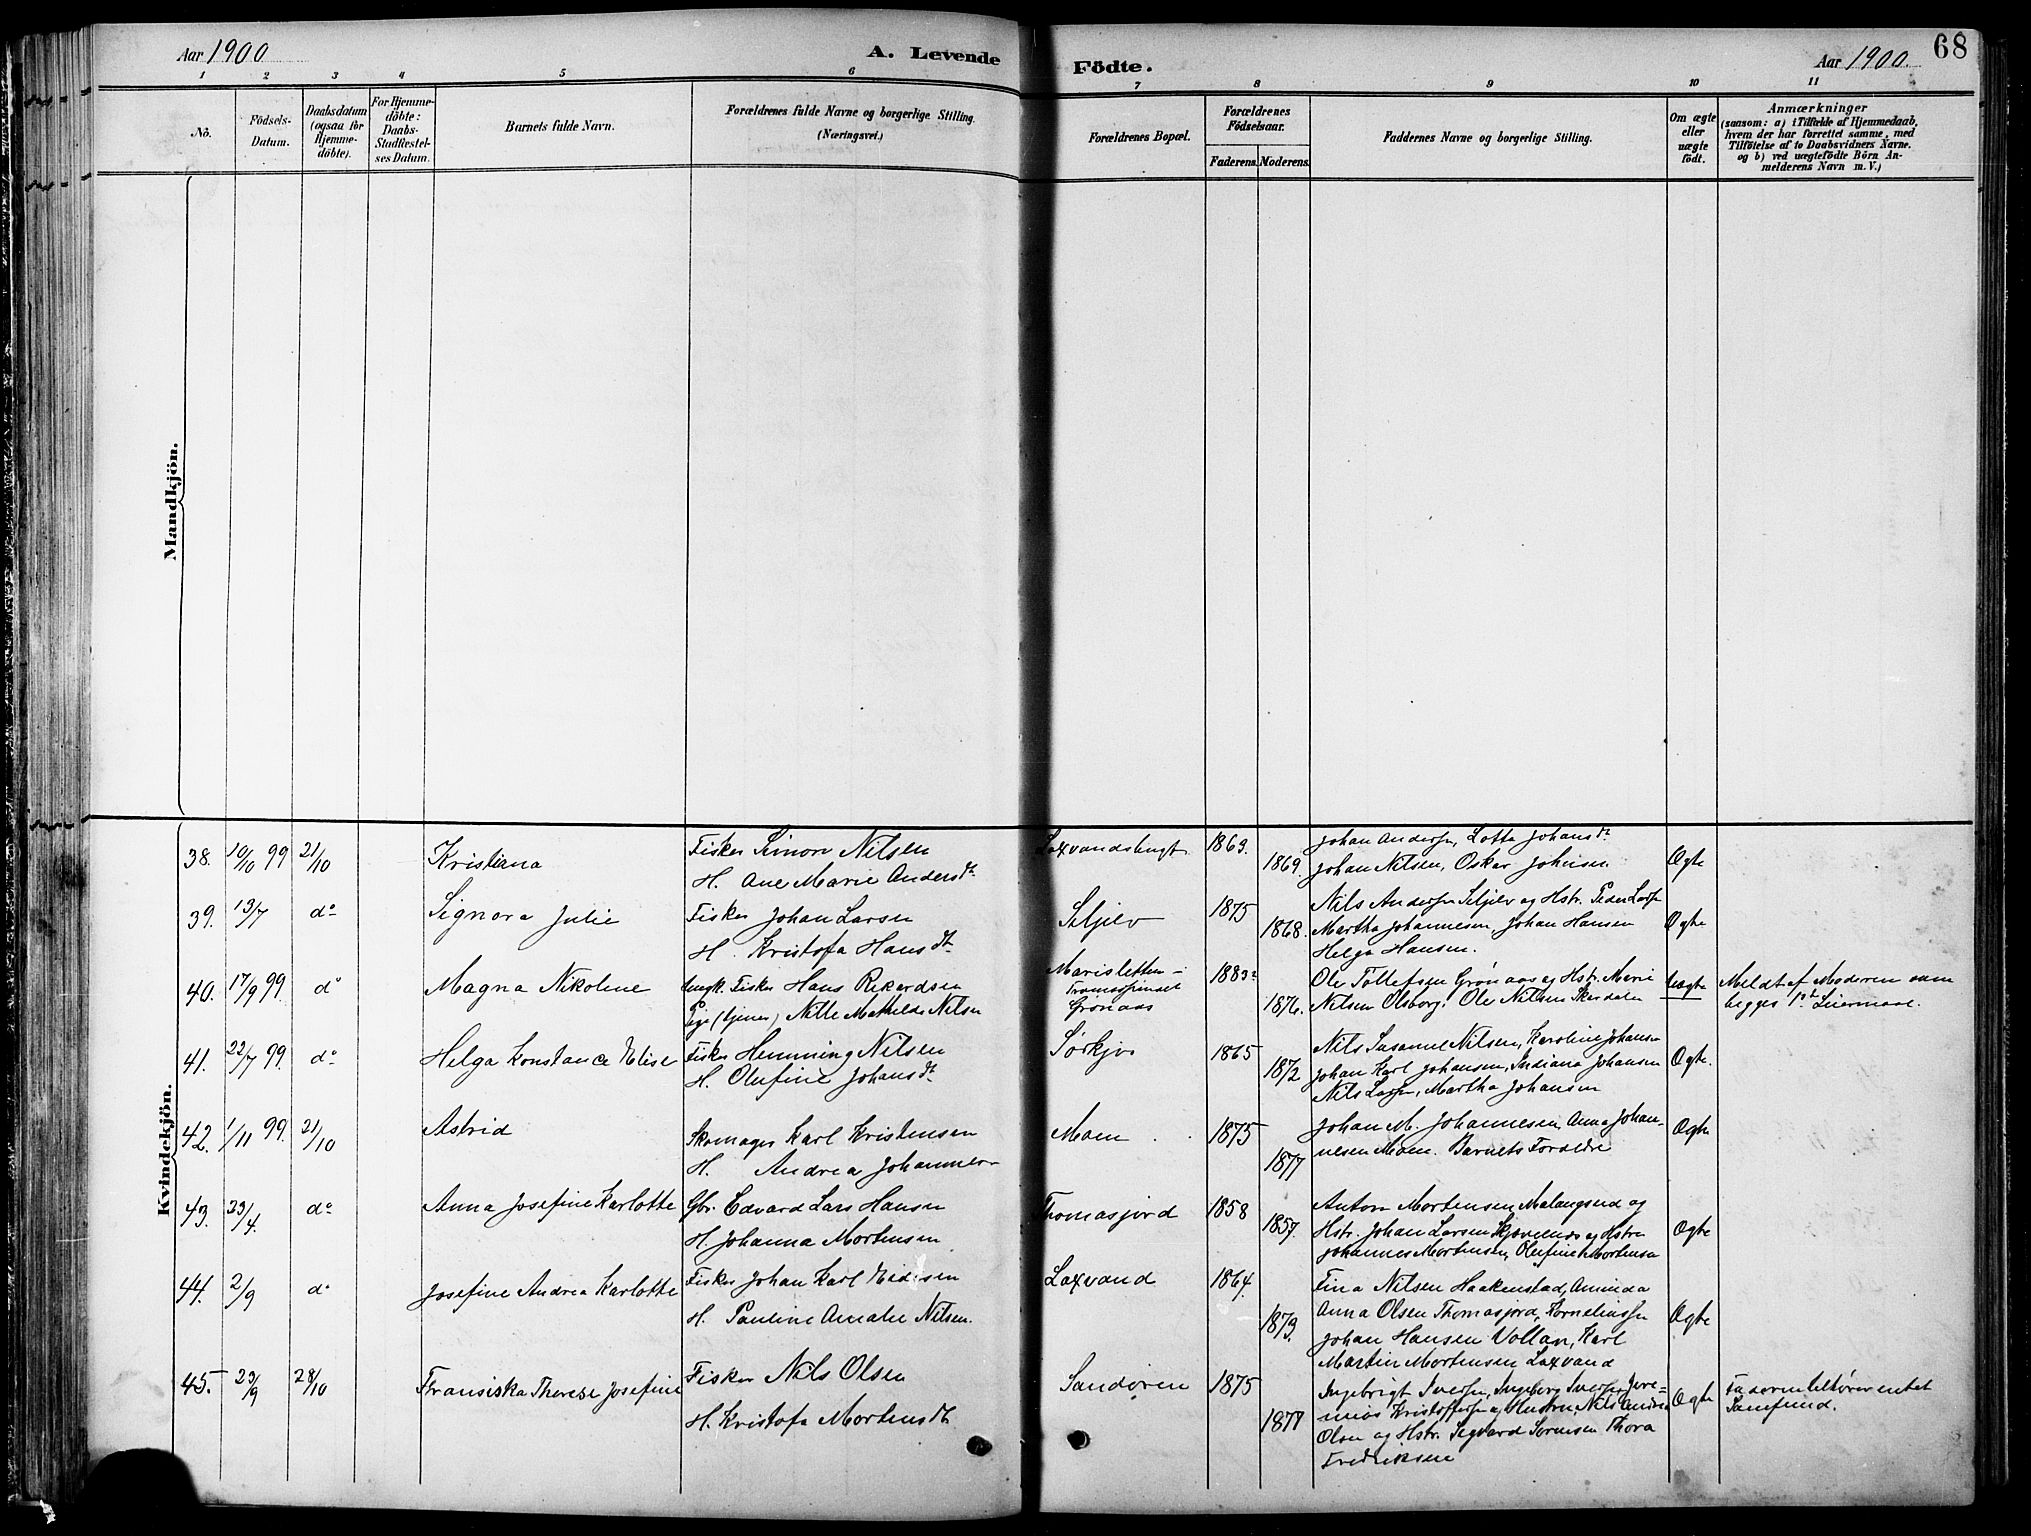 Aar 1900
A. Levende
Födte.
Aar 1900.
68
1 2 3 4 5 6 7 8 9 10 11
No.
Födsels-
Datum.
Daabsdatum
(ogsaa for
Hjemme-
döbte).
For Hjemme-
döbte:
Daabs-
Stadfæstel-
ses Datum.
Barnets fulde Navn.
Forældrenes fulde Navne og borgerlige Stilling.
(Næringsvei.)
Forældrenes Bopæl.
Forældrenes
Födselsaar.
Faderens. Moderens.
Faddernes Navne og borgerlige Stilling.
Om ægte
eller
uægte
födt.
Anmærkninger
(saasom: a) i Tilfælde af Hjemmedaab,
hvem der har forrettet samme, med
Tilföielse af to Daabsvidners Navne.
og b) ved uægtefödte Börn An-
melderens Navn m. V.)
Mandkjön.
Kvindekjön.
38. 10/10 99 21/10
Kristiana
Fisker Simon Nilsen
H. Ane Marie Andersdt.
Laxvandsbugt
1863.
1869.
Johan Andersn, Lotta Johansdt.
Johan Nilsen, Oskar Johnsen
Ægte
39. 13/7 do
Signora Julie
Fisker Johan Larsen
H. Kristofa Hansdt.
Seljelv
1875
1868.
Nils Andersen Seljelv og Hstr. Peder Larsn
Martha Johannesen, Johan Hansen
Helga Hansen.
Ægte
40. 17/9 99. do
Magna Nikoline
Ungk. Fisker Hans Rikardsen
Pige (tjener) Nille Mathilde Nilsen
Marisletten -
Tromsøsundet
Grønaas
1883
1876.
Ole Tollefsen Grønaas og Hstr. Marie
Nilsen Olsborg. Ole Nilsen Skardalen
Uægte
Meldt af Moderen som
begges 1st Leiermaal.
41. 22/7 99. do
Helga Konstance Elise
Fisker Hemming Nilsen
H. Olufine Johansdt.
Sørkjos
1865
1872
Nils Susanne Nilsen, Karoline Johansn
Johan Karl Johansen, Indiana Johansen
Nils Larsn, Martha Johansen
Ægte.
42. 1/11 99. 21/10
Astrid
Skomager Karl Kristensen
H. Andrea Johannesn
Moen
1875
1877
Johan M. Johannesen, Anna Johan-
nesen Moen. Barnets Forældre
Ægte
43. 23/4. do
Anna Josefine Karlotte
Gbr. Edvard Lars Hansen
H. Johanna Mortensen
Thomasjord
1858
1857.
Anton Mortensen Malangseid og
Hstr. Johan Larsen Skjævelnes og Hstru
Johannes Mortensen, Olufine Mortensen
Ægte
44. 2/9 do
Josefine Andrea Karlotte
Fisker Johan Karl
H. Pauline Amalie Nilsen.
Laxvand
1864.
1873.
Fina Nilsen Haakenstad, Aminda
Anna Olsen Thomasjord, Korneliussn
Johan Hansen Vollan, Karl
Martin Mortensen Laxvand
Ægte
45. 23/9 28/10
Fransiska Therese Josefine
Fisker Nils Olsen
H. Kristofa Mortensdt.
Sandøren
1875
1877
Ingebrigt Iversn, Ingeborg Iversn, Jere-
mias Kristoffersn og Hustru, Nils Andrea
Olsen og Hstr. Segvard Sørensen Thora
Fredriksen
Ægte
Faderen tilhører intet
Samfund.